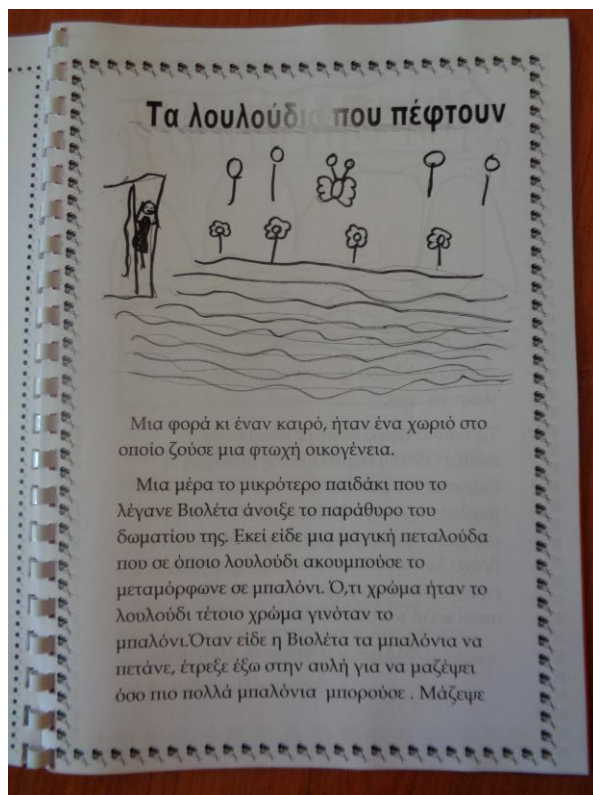 Τα λουλούδια που πέφτουν
Μια φορά κι έναν καιρό, ήταν ένα χωριό στο
οποίο ζούσε μια φτωχή οικογένεια.
Μια μέρα το μικρότερο παιδάκι που το
λέγανε Βιολέτα άνοιξε το παράθυρο του
δωματίου της. Εκεί είδε μια μαγική πεταλούδα
που σε όποιο λουλούδι ακουμπούσε το
μεταμόρφωνε σε μπαλόνι. Ό,τι χρώμα ήταν το
λουλούδι τέτοιο χρώμα γινόταν το
μπαλόνι.Όταν είδε η Βιολέτα τα μπαλόνια να
πετάνε, έτρεξε έξω στην αυλή για να μαζέψει
όσο πιο πολλά μπαλόνια μπορούσε . Μάζεψε